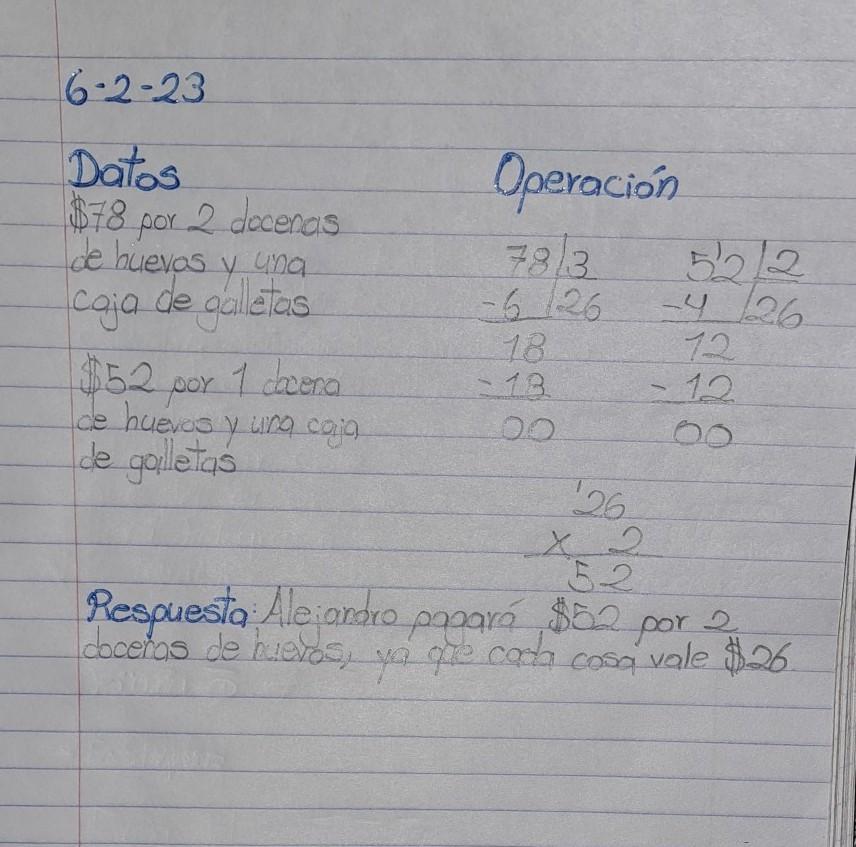 6-2-23
Datos
$78 por 2 docenas
de huevos y una
caja de galletas
$52 por 1 docena
de huevos y una caja
de galletas
Operación
78 3
-6 26
18
-18
00
5'2 2
-4 26
12
-12
00
'26
x 2
52
Respuesta: Alejandro pagará $52 por 2
docenas de huevos, ya que cada cosa vale $26